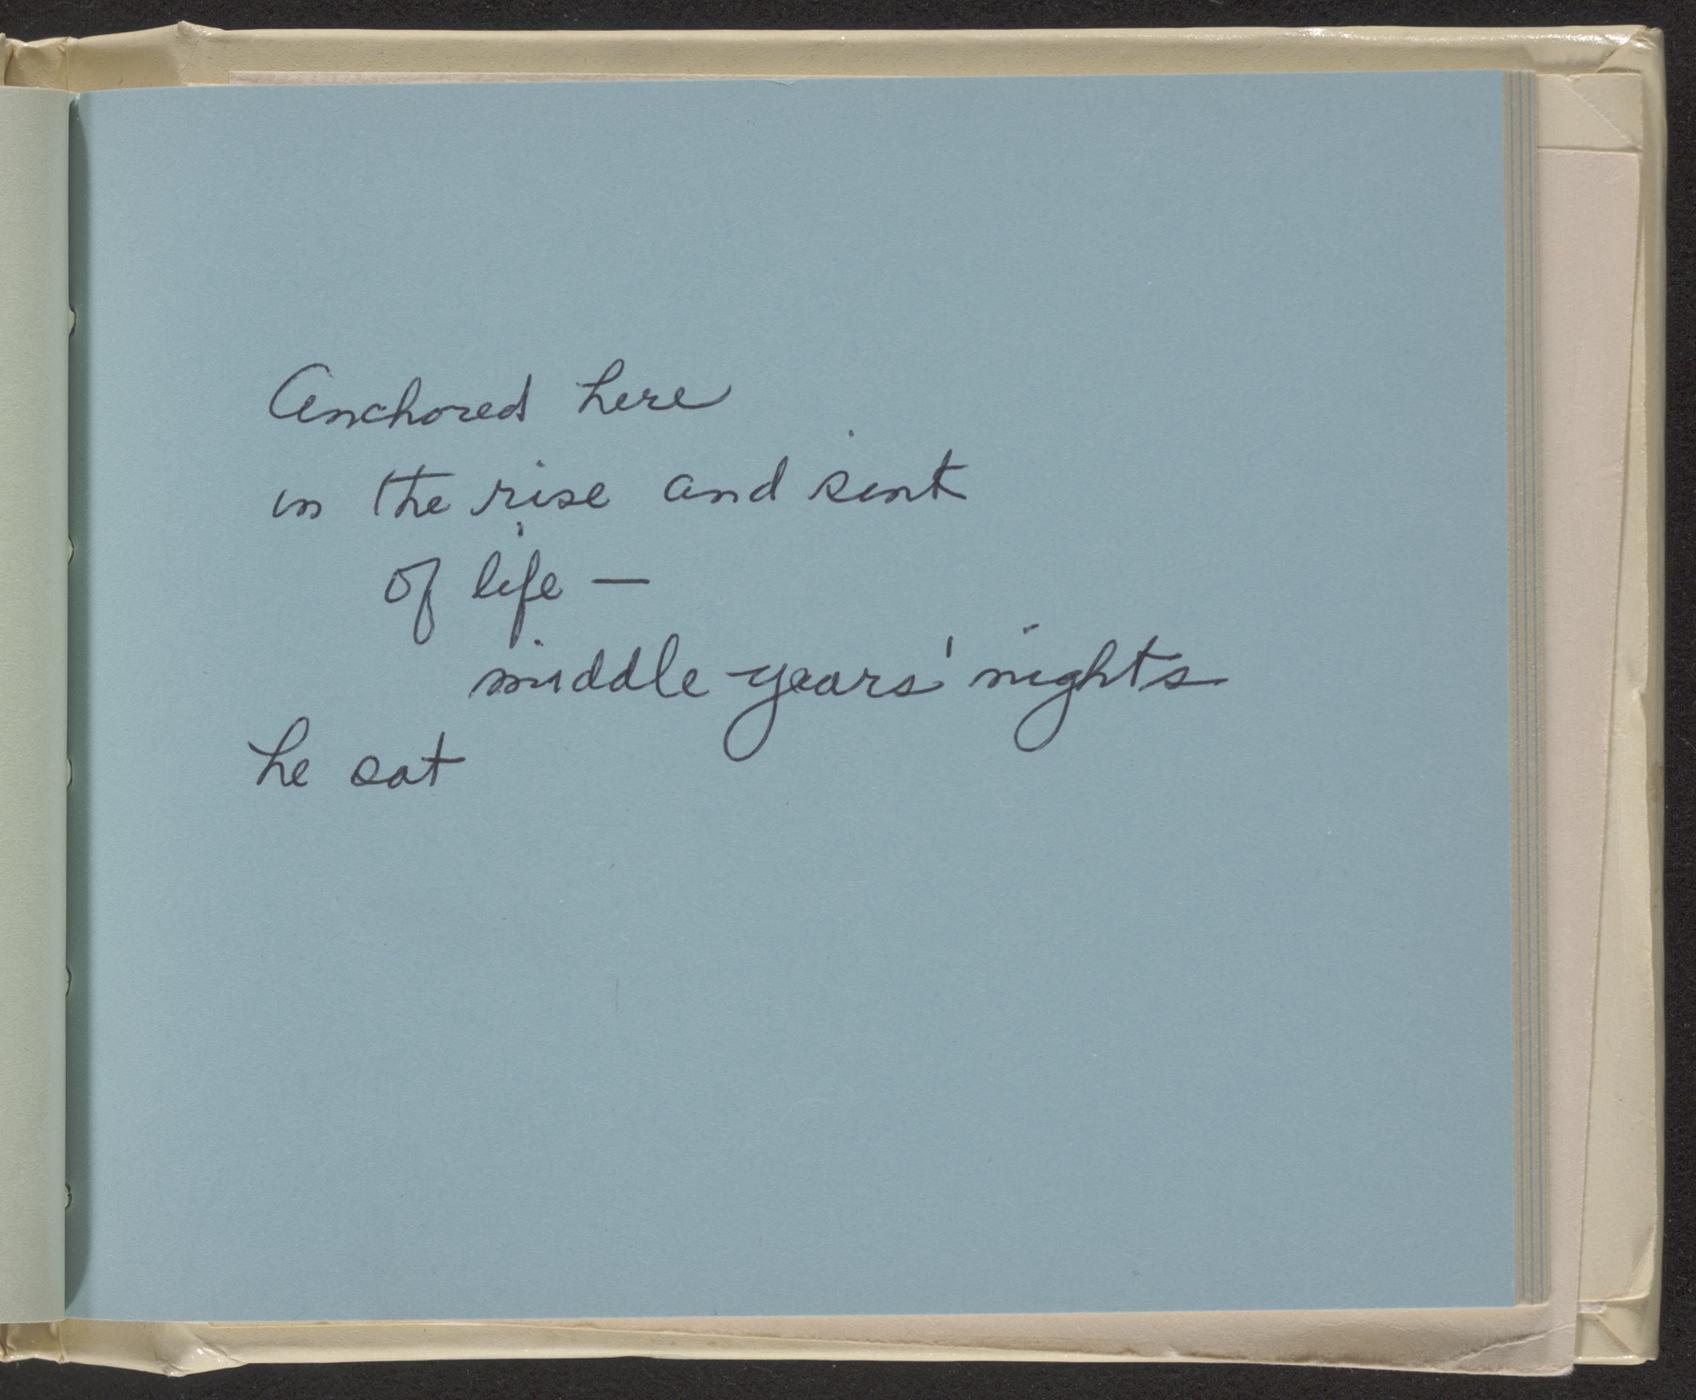 Anchored here
in the rise and sink
of life —
middle years' nights
he sat